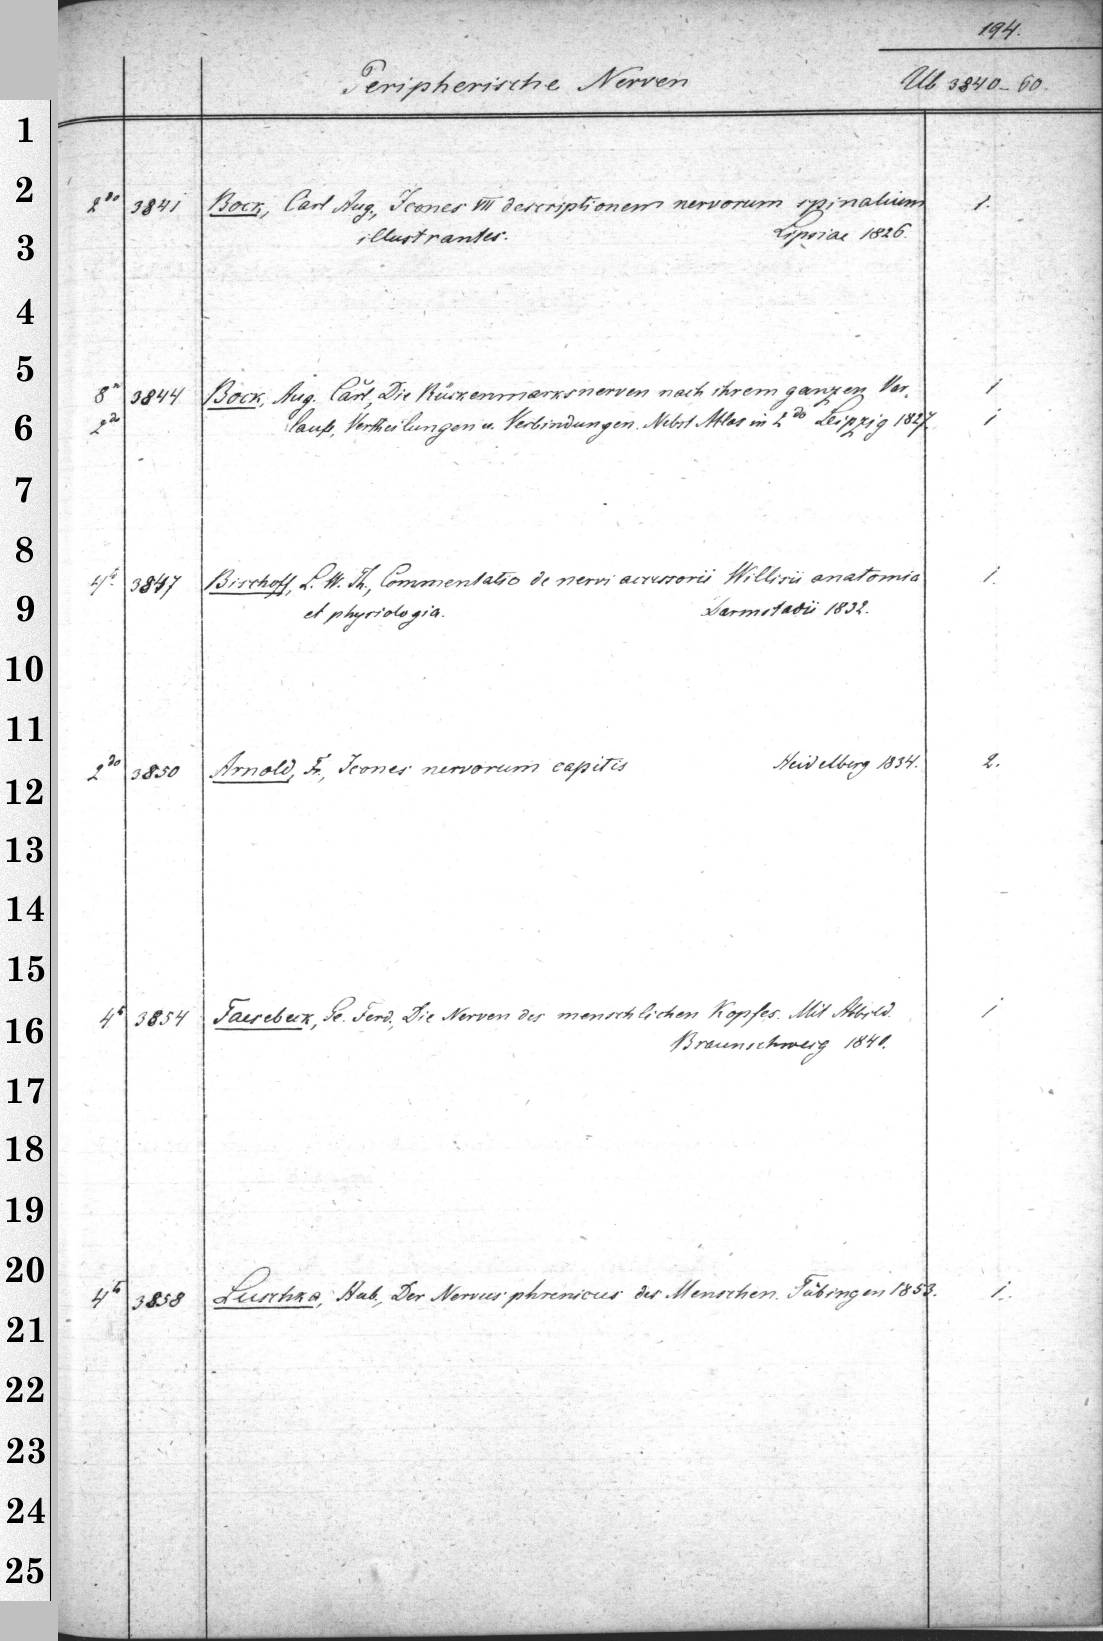 194.
Peripherische Nerven Ub 3840-60.
1
2
2do 3841 Bock, Carl Aug., Icones VIII descriptionem nervorum spinalium 1.
3 illustrantes. Lipsiae 1826.
4
5
8o 3844 Bock, Aug. Carl, Die Rückenmarksnerven nach ihrem ganzen Ver- 1
6 2do laufe, Vertheilungen u. Verbindungen. Nebst Atlas in 2do Leipzig 1827. 1
7
8
4to 3847 Bischoff, L. W. Th., Commentatio de nervi accessorii Willisii anatomia 1.
9 et physiologia. Darmstadii 1832.
10
11
2do 3850 Arnold, Fr., Icones nervorum capitis Heidelberg 1834. 2.
12
13
14
15
4to 3854 Faesebeck, Ge. Ferd., Die Nerven des menschlichen Kopfes. Mit Abbild. 1
16 Braunschweig 1840.
17
18
19
20
4to 3858 Luschka, Hub., Der Nervus phrenicus des Menschen. Tübingen 1853. 1.
21
22
23
24
25